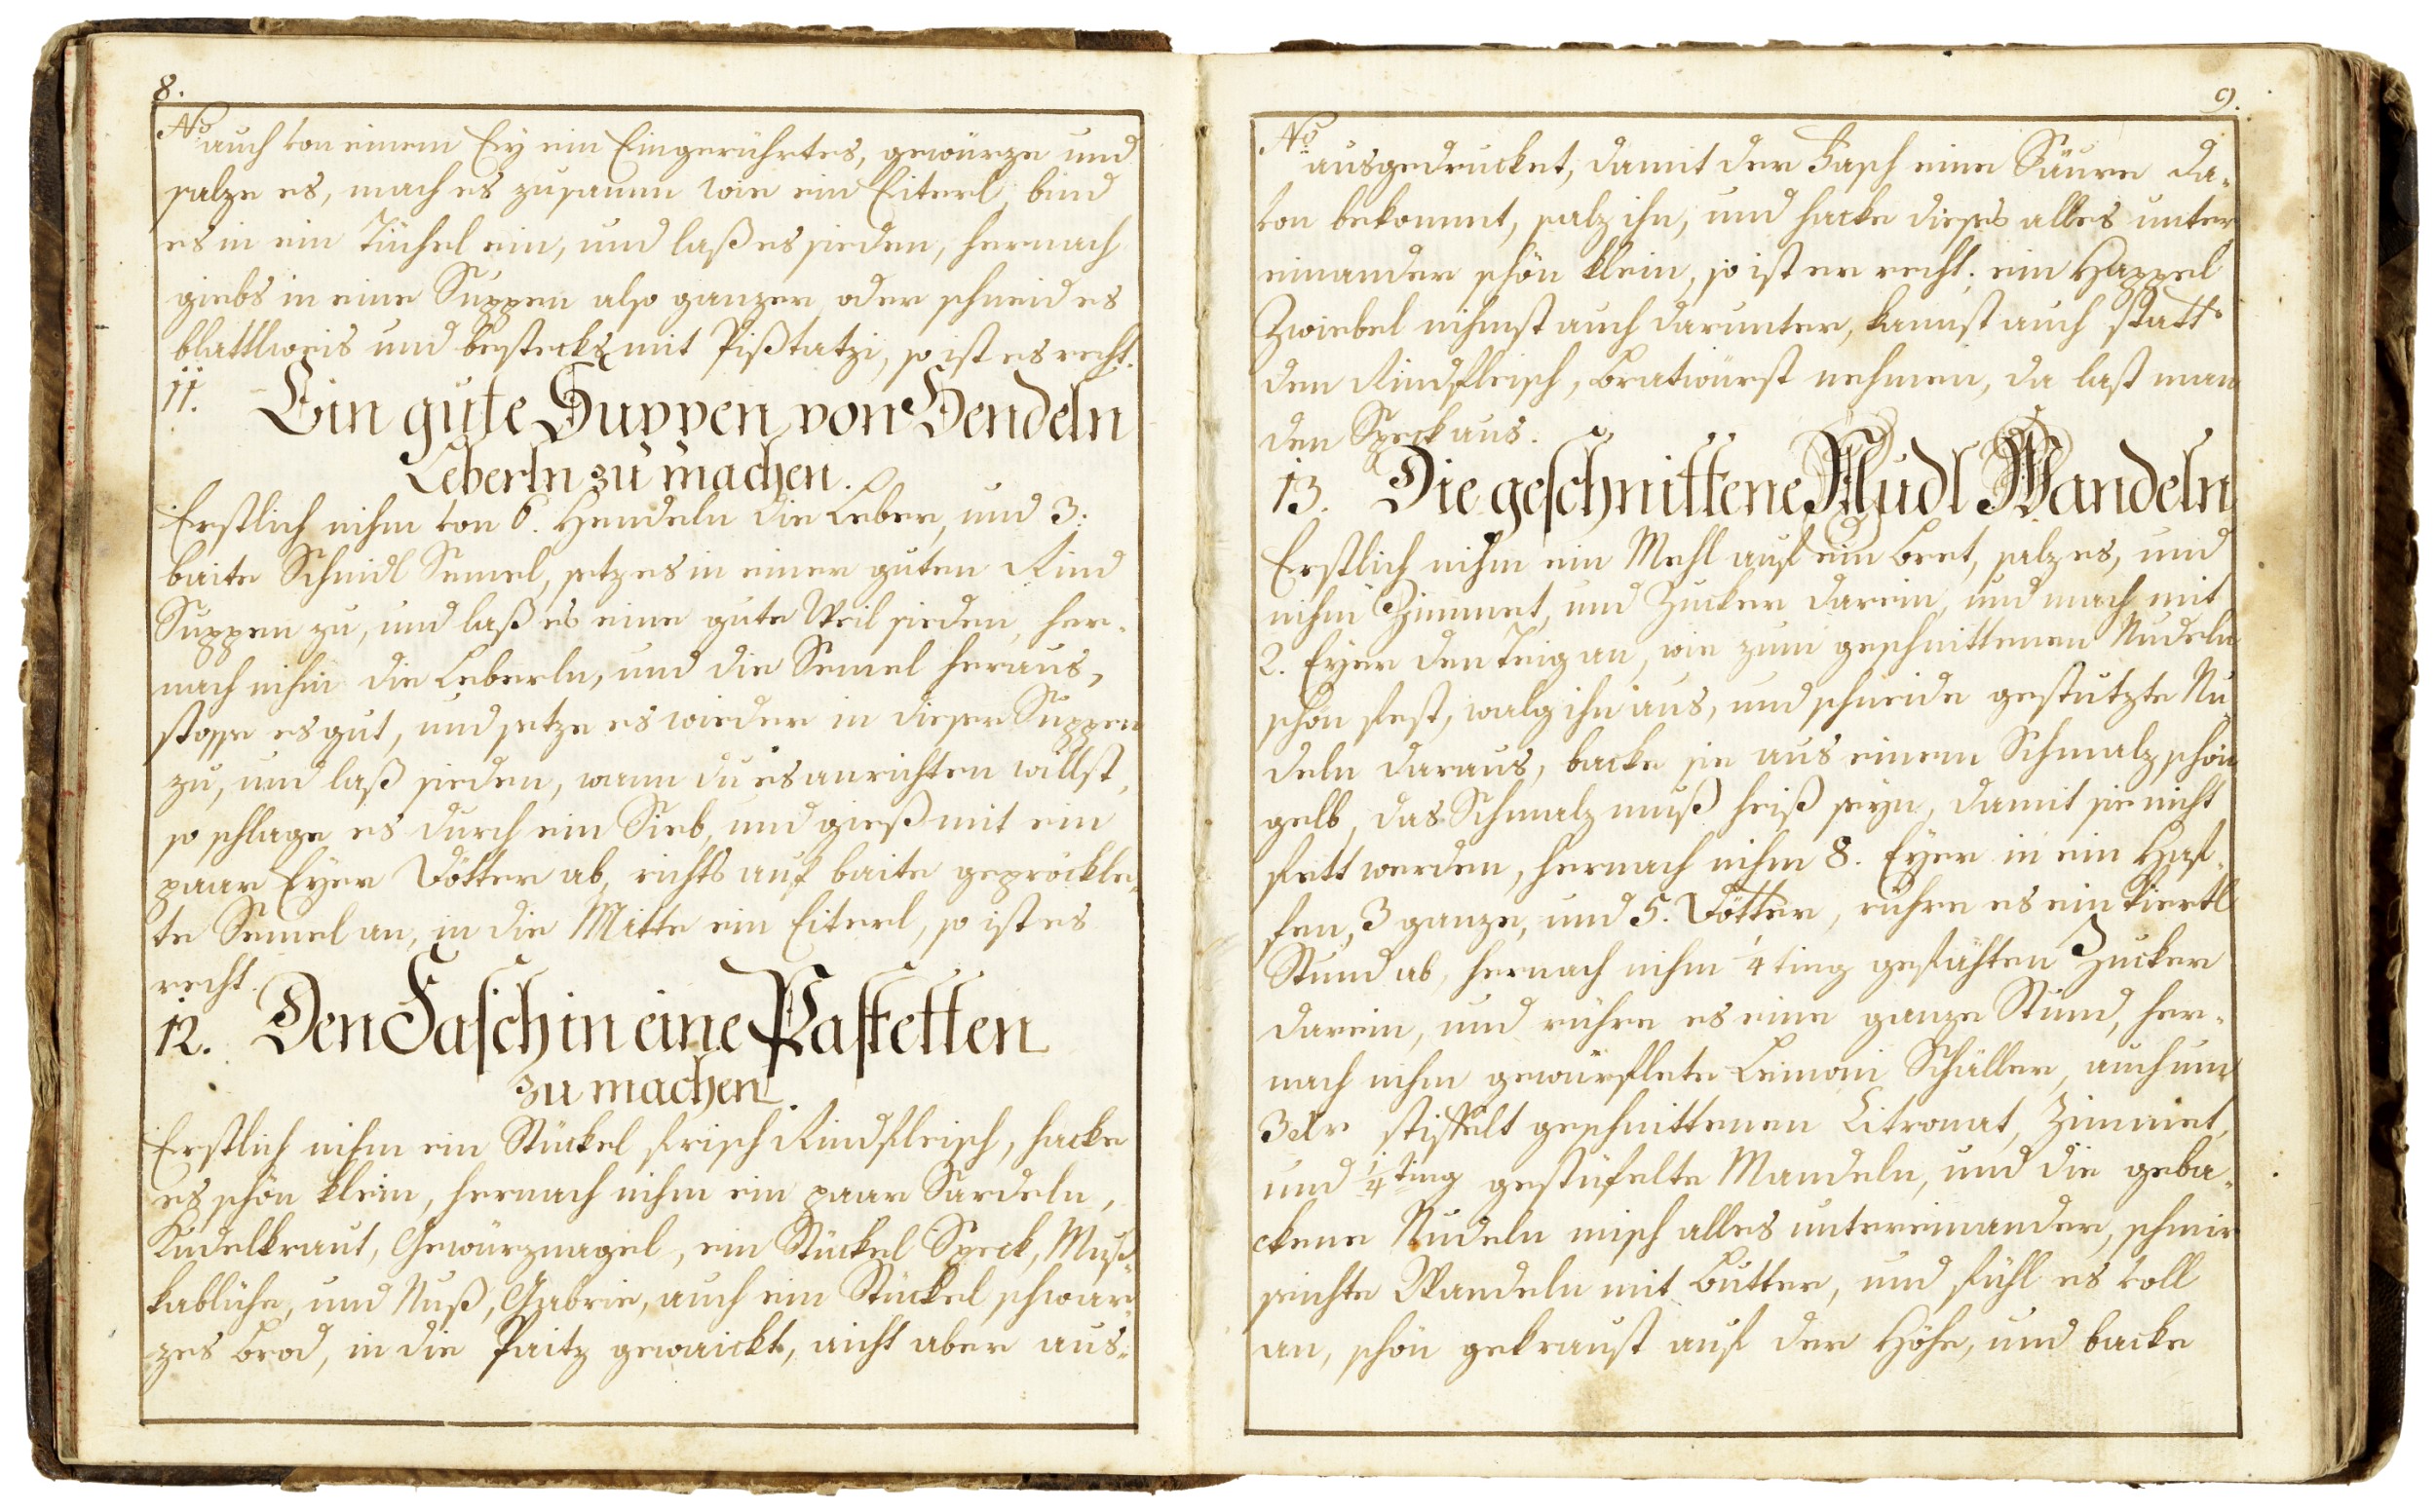 8.
No auch von einem Ey ein Eingerührtes, gewürze und
salze es, mach es zusamm wie ein Eiterl, bind
es in ein Tüchel ein, und laß es sieden, hernach
giebs in eine Suppen also ganzer, oder schneid es
blattlweis und bestecks mit Pißtatzi, so ist es recht.
11. Ein gute Suppen von Hendeln
Leberln zu machen.
Erstlich nihm von 6. Hendeln die Leber, und 3.
baite Schnidl Semel, setz es in einer guten Rind
Suppen zu, und laß es eine gute Weil sieden, her-
nach nihm die Leberln, und die Semel heraus,
stosse es gut, und setze es wieder in dieser Suppen
zu, und laß sieden, wann du es anrichten willst,
so schlage es durch ein Sieb, und gieß mit ein
paar Eyer Dötter ab, richts auf baite gepröckle-
te Semel an, in die Mitte ein Eiterl, so ist es
recht.
12. Den Fasch in eine Pastetten
zu machen.
Erstlich nihm ein Stückel frisch Rindfleisch, hacke
es schön klein, hernach nihm ein paar Sardeln,
Kudelkraut, Gewürznagel, ein Stückel Speck, Muß-
kablühe, und Nuß, Gabrie, auch ein Stückel schwar-
zes Brod, in die Paitz gewaickt, nicht aber aus-
9.
No ausgedrucket, damit der Fasch eine Säure da-
von bekommt, salz ihn, und hacke dieses alles unter
einander schön klein, so ist er recht; ein Happel
Zwiebel nihmst auch darunter, kannst auch statt
den Rindfleisch, Bratwürst nehmen, da last man
den Speck aus.
13. Die geschnittene Nudl Wandeln
Erstlich nihm ein Mehl auf ein Bret, salz es, und
nihm Zimmet, und Zucker darein, und mach mit
2. Eyer den Teig an, wie zum geschnittenen Nudeln
schön fest, walg ihn aus, und schneide gestutzte Nu
deln daraus, backe sie aus einem Schmalz schön
gelb, das Schmalz muß heiß seyn, damit sie nicht
fett werden, hernach nihm 8. Eyer in ein Haf-
fen, 3 ganze, und 5. Dötter, rühre es ein Viertl
Stund ab, hernach nihm 1/4 ting gefähten Zucker
darein, und rühre es eine ganze Stund, her-
nach nihm gewürflete Lemoni Schäller, auch um
3 Xr stiftelt geschnittenen Citronat, Zimmet,
und 1/4 ting gestiefelte Mandeln, und die geba-
ckene Nudeln misch alles untereinander, schmir
seichte Wandeln mit Butter, und fühl es voll
an, schön gekraust auf der Höhe, und backe